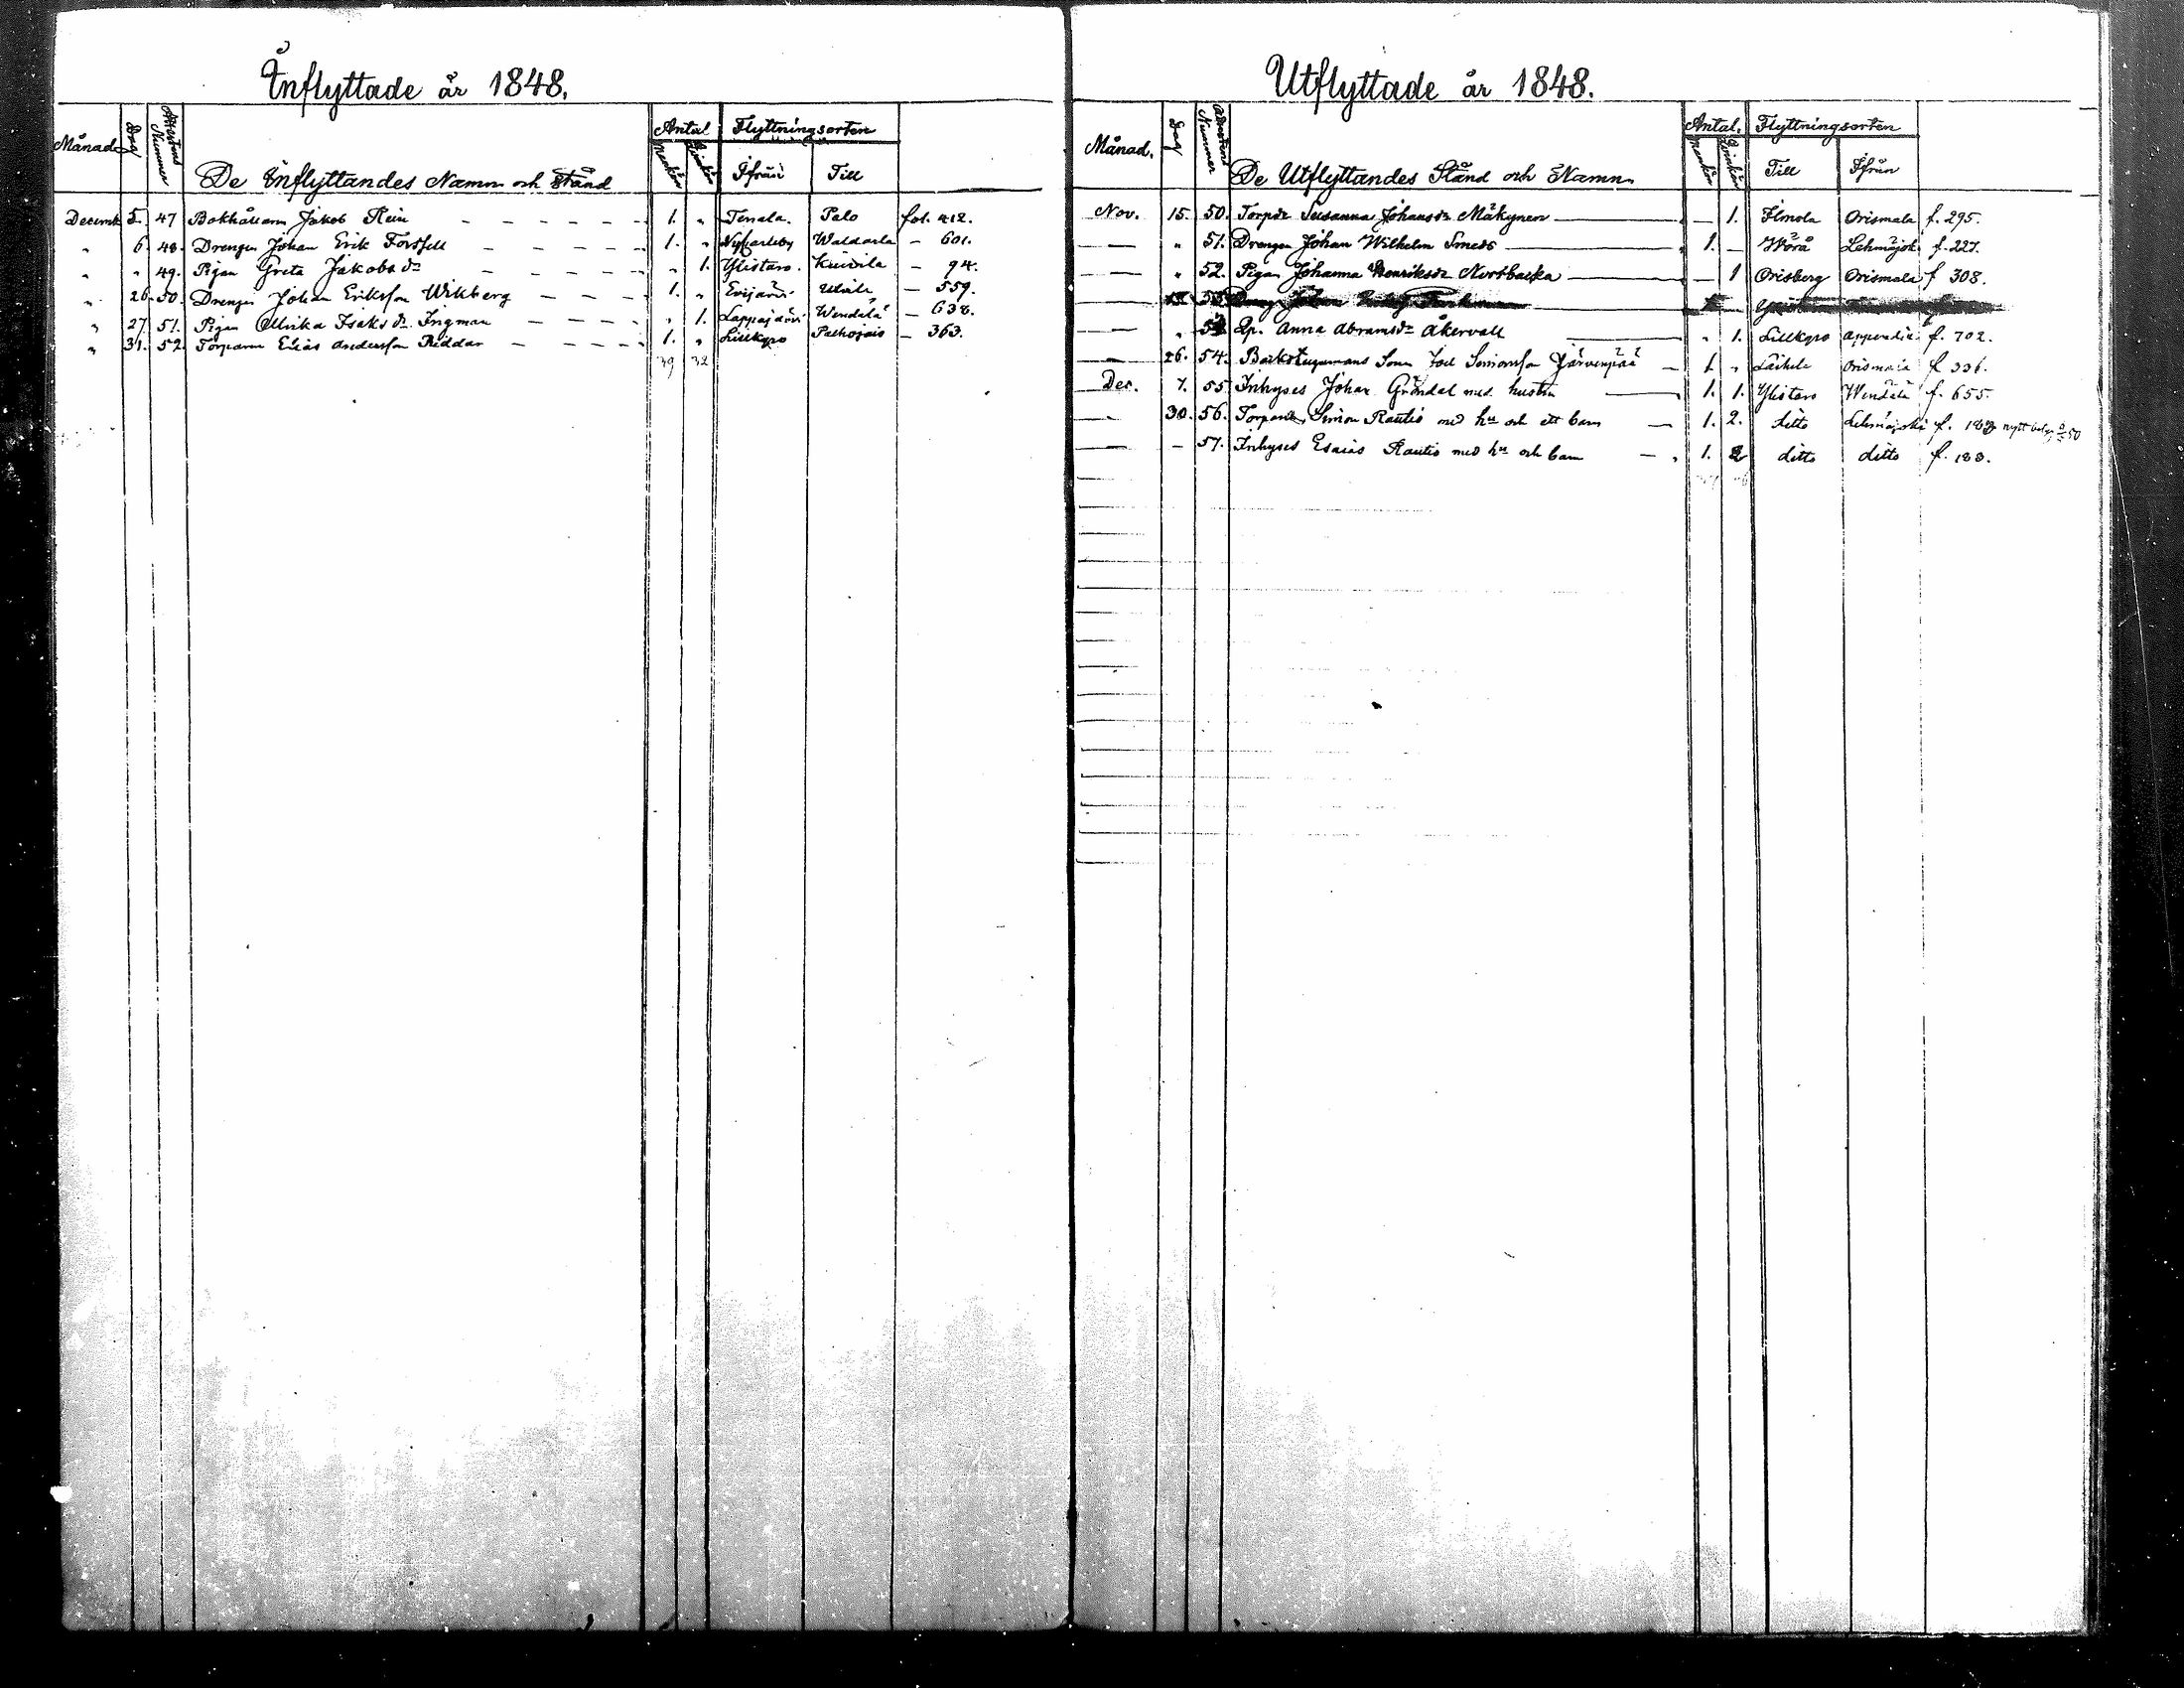 Inflyttade år 1848.
Månad Dag Attestens Nummer De Inflyttandes Namn och Stånd Antal Mankön Qvinkön Flyttningsorten Ifrån Till
Decemb. 5. 47 Bokhållaren Jakob Rein 1. „ Tenala. Palo fol. 412.
„ 6. 48. Drengen Johan Erik Forsfell 1. „ Nykarleby Waldarla — 601.
„ „ 49. Pigan Greta Jakobs dr „ 1. Ylistaro. Kuivila — 94.
„ 26. 50. Drengen Johan Eriksson Wikberg 1. „ Evijärvi Ulvila — 559.
„ 27. 51. Pigan Ulrika Isaks dr. Ingman „ 1. Lappajärvi Wendälä — 638.
„ 31. 52. Torparen Elias Andersson Riddar 1. „ Lillkyro Palhojais — 363.
39 32
Utflyttade år 1848.
Månad. Dag Attestens Nummer De Utflyttandes Stånd och Namn Antal. Mankön Qvinkön Flyttningsorten Till Ifrån
Nov. 15. 50. Torpdr Susanna Johansdr Mäkynen — 1. Ilmola Orismala f. 295.
— „ 51. Drengen Johan Wilhelm Smeds 1. — Wörå Lehmäjok. f. 227.
— „ 52. Pigan Johanna Henriksdr Norrbacka — 1 Orisberg Orismala f 308.
— „ 53 Qp. Anna Abramsdr Åkervall „ 1. Lillkyro appendix f. 702.
— 26. 54. Backstugumans Sonen Joel Simonsson Järvenpää — 1. „ Laihela Orismala f 336.
Dec. 7. 55 Inhyses Johan Gröndal med hustru 1. 1. Ylistaro Wendälä f. 655.
— 30. 56. Torparen Simon Rautio med hu och ett barn — 1. 2. ditto Lehmäjoki f. 183 nytt
— — 57. Inhyses Esaias Rautio med hu och barn — 1. 2 ditto ditto f. 183.